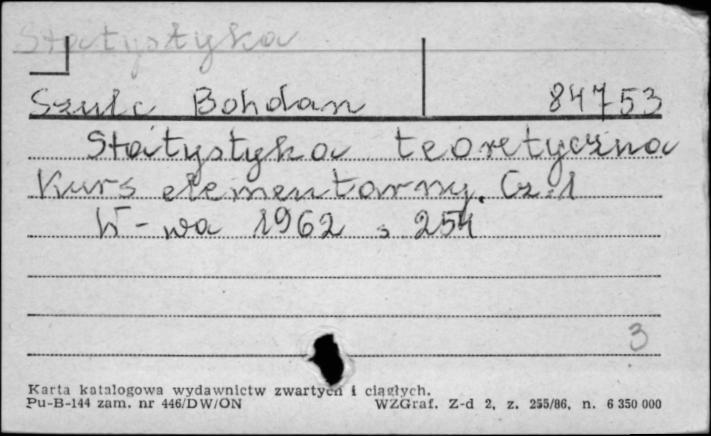 Statystyka
Szulc Bohdan 84753
Statystyka teoretyczna
Kurs elementarny. Cz. 1
W-wa 1962 s 254
3
Karta katalogowa wydawnictw zwartych i ciągłych.
Pu-B-144 zam. nr 446/DW/ON WZGraf. Z-d 2, z. 255/86, n. 6 350 000